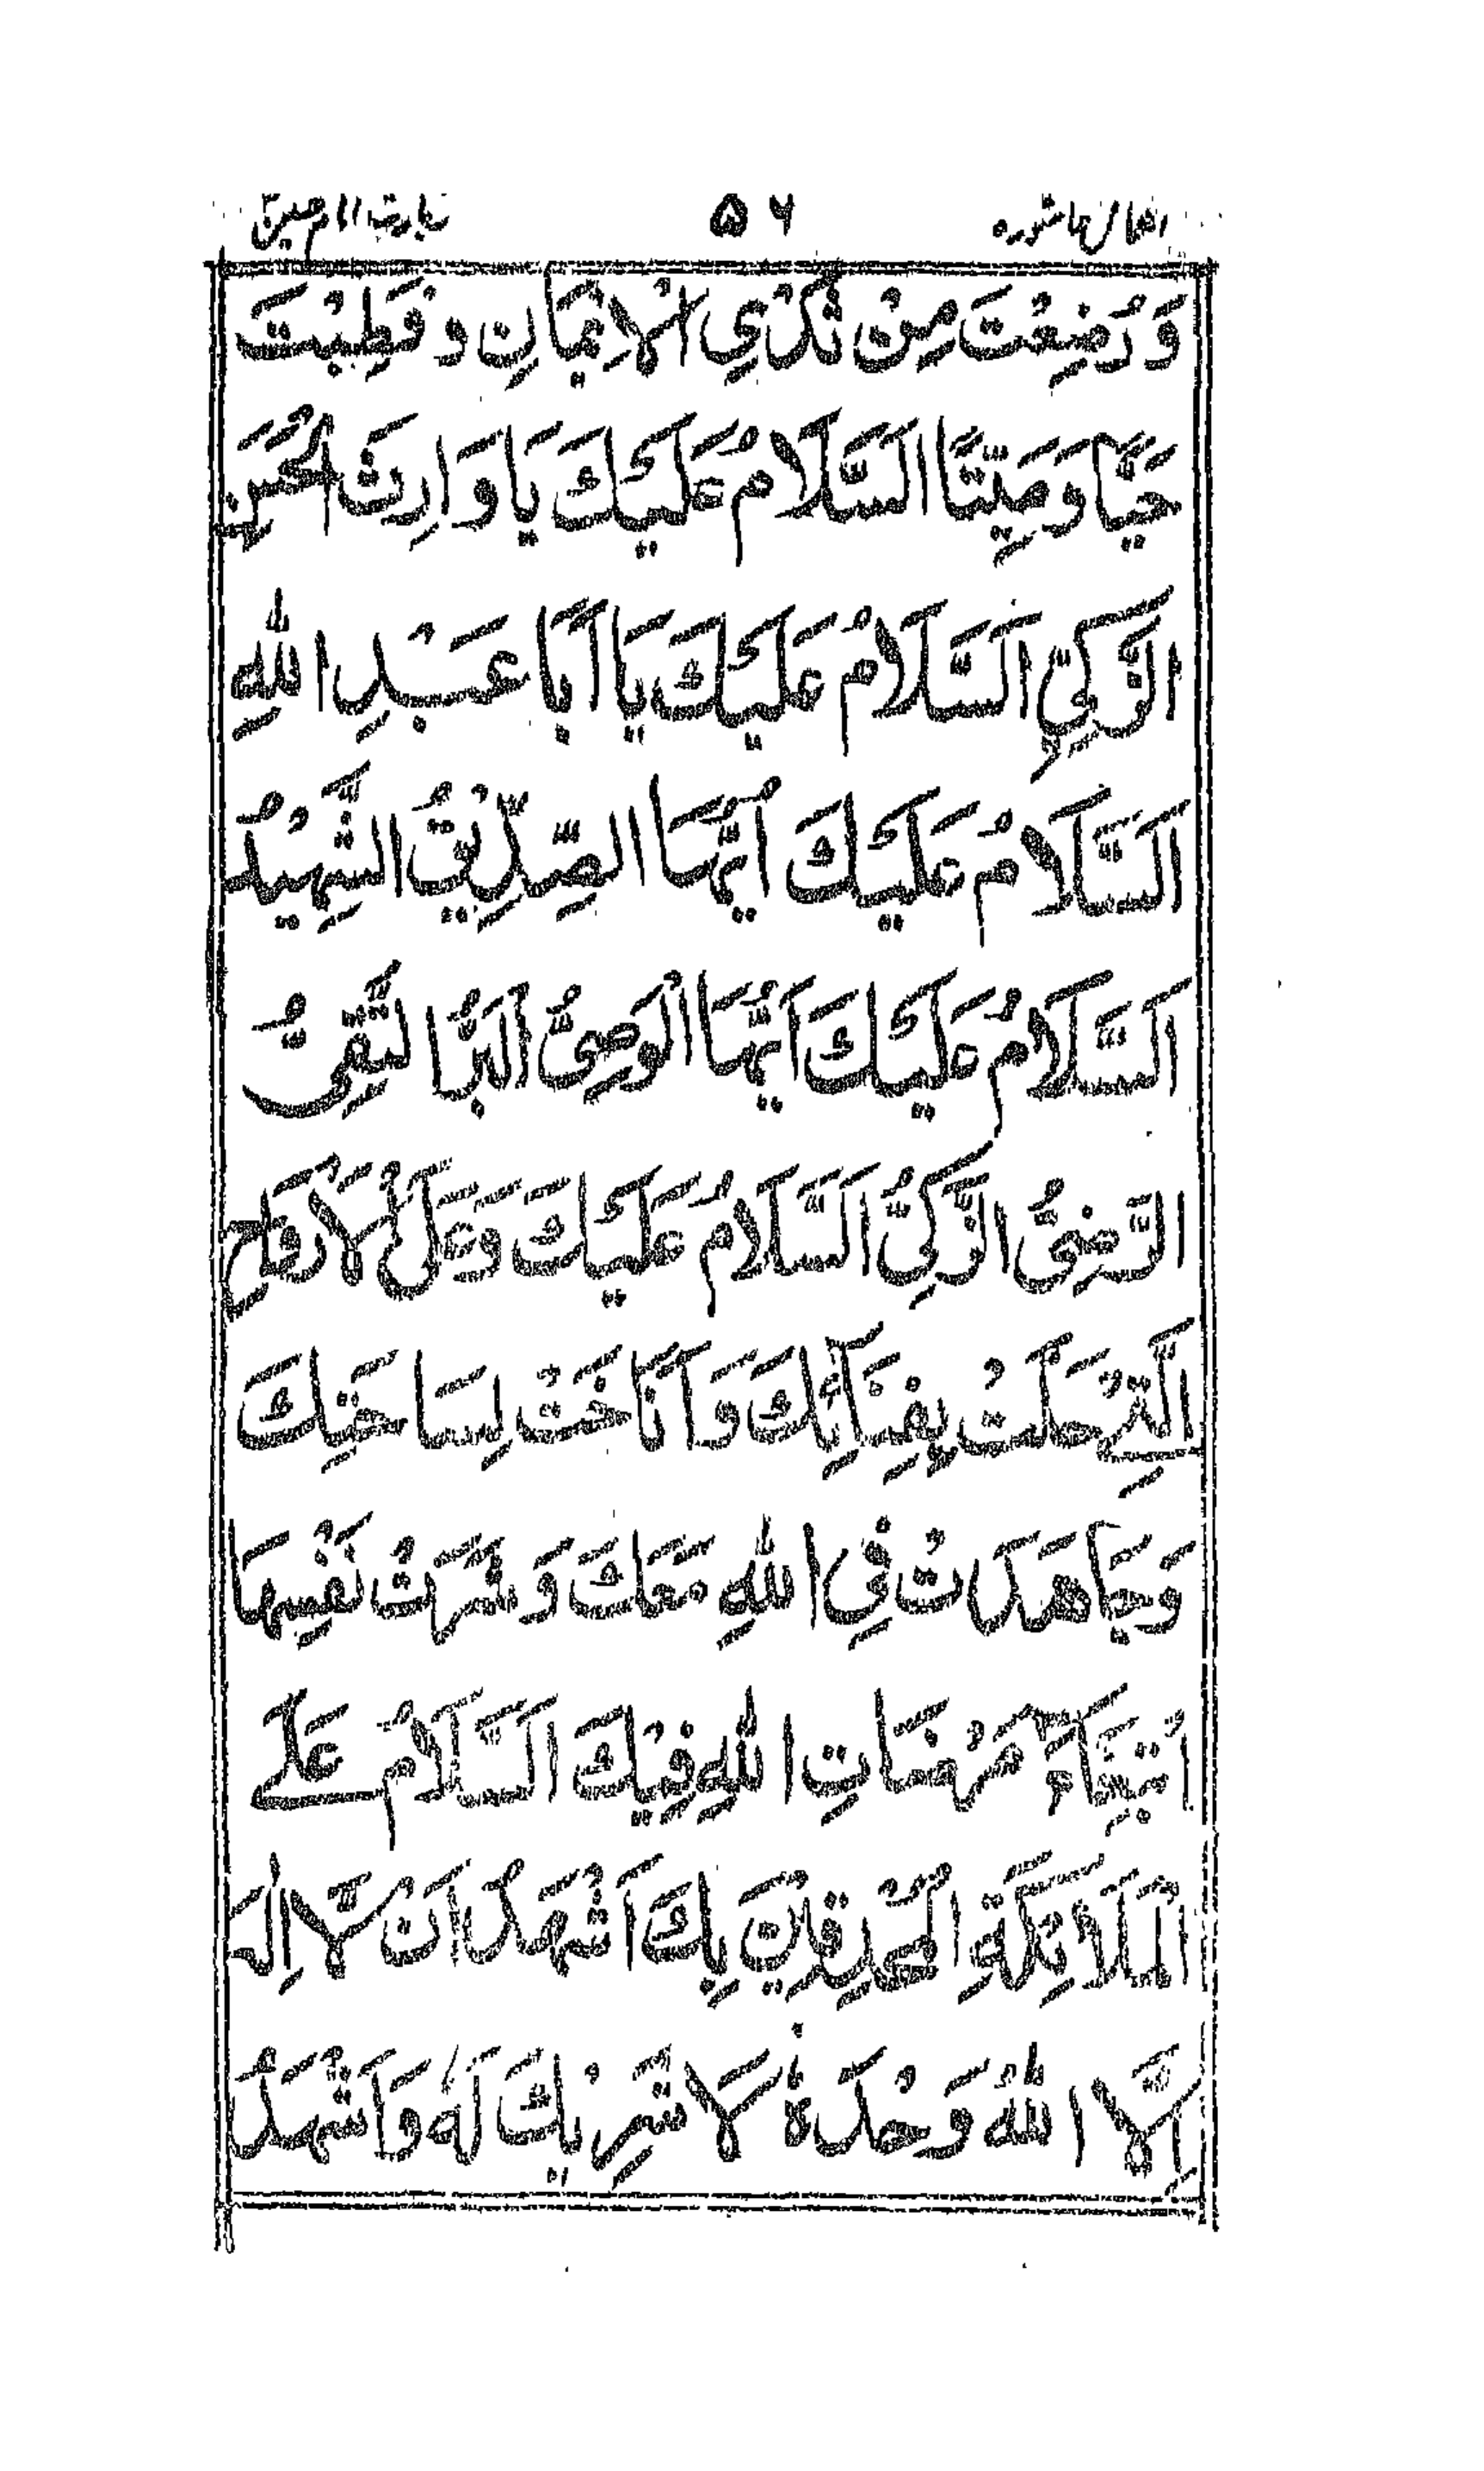 اعمال عاشوره ۵۶ زیارت امام حسینؑ
وَرُضِعْتَ مِنْ ثَدْيِ الْاِيْمَانِ وَفَطِبْتَ
حَيًّا وَمَيِّتًا السَّلَامُ عَلَيْكَ يَا وَارِثَ الْحَسَنِ
الزَّكِيِّ اَلسَّلَامُ عَلَيْكَ يَا اَبَا عَبْدِ اللهِ
اَلسَّلَامُ عَلَيْكَ اَيُّهَا الصِّدِّيْقُ الشَّهِيْدُ
اَلسَّلَامُ عَلَيْكَ اَيُّهَا الْوَصِيُّ الْبَرُّ التَّقِيُّ
الرَّضِيُّ الزَّكِيُّ اَلسَّلَامُ عَلَيْكَ وَعَلَى الْاَرْوَاحِ
الَّتِيْ حَلَّتْ بِفِنَآئِكَ وَاَنَاخَتْ بِسَاحَتِكَ
وَجَاهَدَتْ فِي اللهِ مَعَكَ وَشَرَتْ نَفْسَهَا
ابْتِغَآءَ مَرْضَاتِ اللهِ فِيْكَ اَلسَّلَامُ عَلَى
الْمَلَآئِكَةِ الْمُحْدِقِيْنَ بِكَ اَشْهَدُ اَنْ لَّا اِلٰهَ
اِلَّا اللهُ وَحْدَهٗ لَا شَرِيْكَ لَهٗ وَاَشْهَدُ